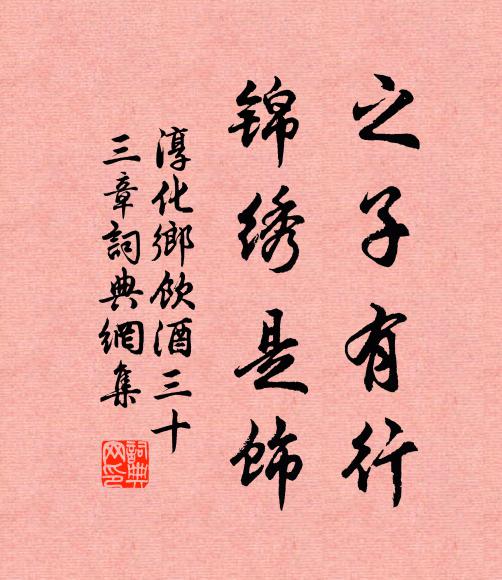 之子有行
锦绣是饰
淳化鄉飲酒三十
三章詞典網集
詞典
网印